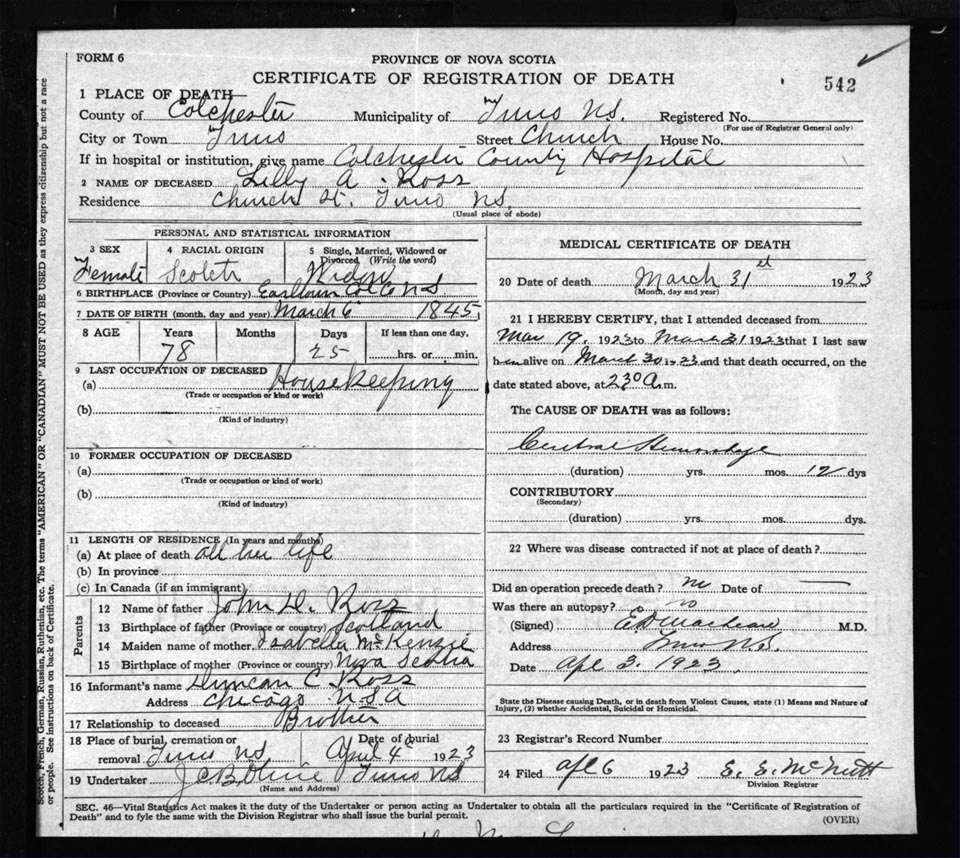 FORM 6
PROVINCE OF NOVA SCOTIA
CERTIFICATE OF REGISTRATION OF DEATH
542
1 PLACE OF DEATH
County of Colchester Municipality of Truro N.S. Registered No.
(For use of Registrar General only)
City or Town Truro Street Church House No.
If in hospital or institution, give name Colchester County Hospital
2 NAME OF DECEASED Lilly A. Ross
Residence Church St. Truro N.S.
(Usual place of abode)
PERSONAL AND STATISTICAL INFORMATION
3 SEX 4 RACIAL ORIGIN 5 Single, Married, Widowed or Divorced (Write the word)
Female Scotch Widow
6 BIRTHPLACE (Province or Country) Earltown Col Co N S
7 DATE OF BIRTH (month, day and year) March 6 1845
8 AGE Years Months Days If less than one day,
78 25 hrs. or min.
9 LAST OCCUPATION OF DECEASED
(a) Housekeeping
(Trade or occupation or kind or work)
(b)
(Kind of industry)
10 FORMER OCCUPATION OF DECEASED
(a)
(Trade or occupation or kind of work)
(b)
(Kind of industry)
11 LENGTH OF RESIDENCE (In years and months)
(a) At place of death all her life
(b) In province
(c) In Canada (if an immigrant)
Parents
12 Name of father John D. Ross
13 Birthplace of father (Province or country) Scotland
14 Maiden name of mother Isabella McKenzie
15 Birthplace of mother (Province or country) Nova Scotia
16 Informant's name Duncan C Ross
Address Chicago USA
17 Relationship to deceased Brother
18 Place of burial, cremation or removal Truro NS Date of burial April 4 1923
19 Undertaker Truro NS
(Name and Address)
MEDICAL CERTIFICATE OF DEATH
20 Date of death March 31st 1923
(Month, day and year)
21 I HEREBY CERTIFY, that I attended deceased from
Mar 19. 1923 to March 31 1923 that I last saw
h alive on March 30 1923 and that death occurred, on the
date stated above, at 230 A.m.
The CAUSE OF DEATH was as follows:
Hemorrhage
(duration) yrs. mos. 12 dys
CONTRIBUTORY
(Secondary)
(duration) yrs. mos. dys.
22 Where was disease contracted if not at place of death?
Did an operation precede death? no Date of —
Was there an autopsy? no
(Signed) M.D.
Address Truro N.S.
Date Apl 3. 1923
State the Disease causing Death, or in death from Violent Causes, state (1) Means and Nature of
Injury, (2) whether Accidental, Suicidal or Homicidal.
23 Registrar's Record Number
24 Filed Apl 6 1923 E. E. McNutt
Division Registrar
SEC. 46—Vital Statistics Act makes it the duty of the Undertaker or person acting as Undertaker to obtain all the particulars required in the "Certificate of Registration of
Death" and to fyle the same with the Division Registrar who shall issue the burial permit.
(OVER)
Scotch, French, German, Russian, Ruthenian, etc. The terms "AMERICAN" OR "CANADIAN" MUST NOT BE USED as they express citizenship but not a race
or people. See instructions on back of Certificate.